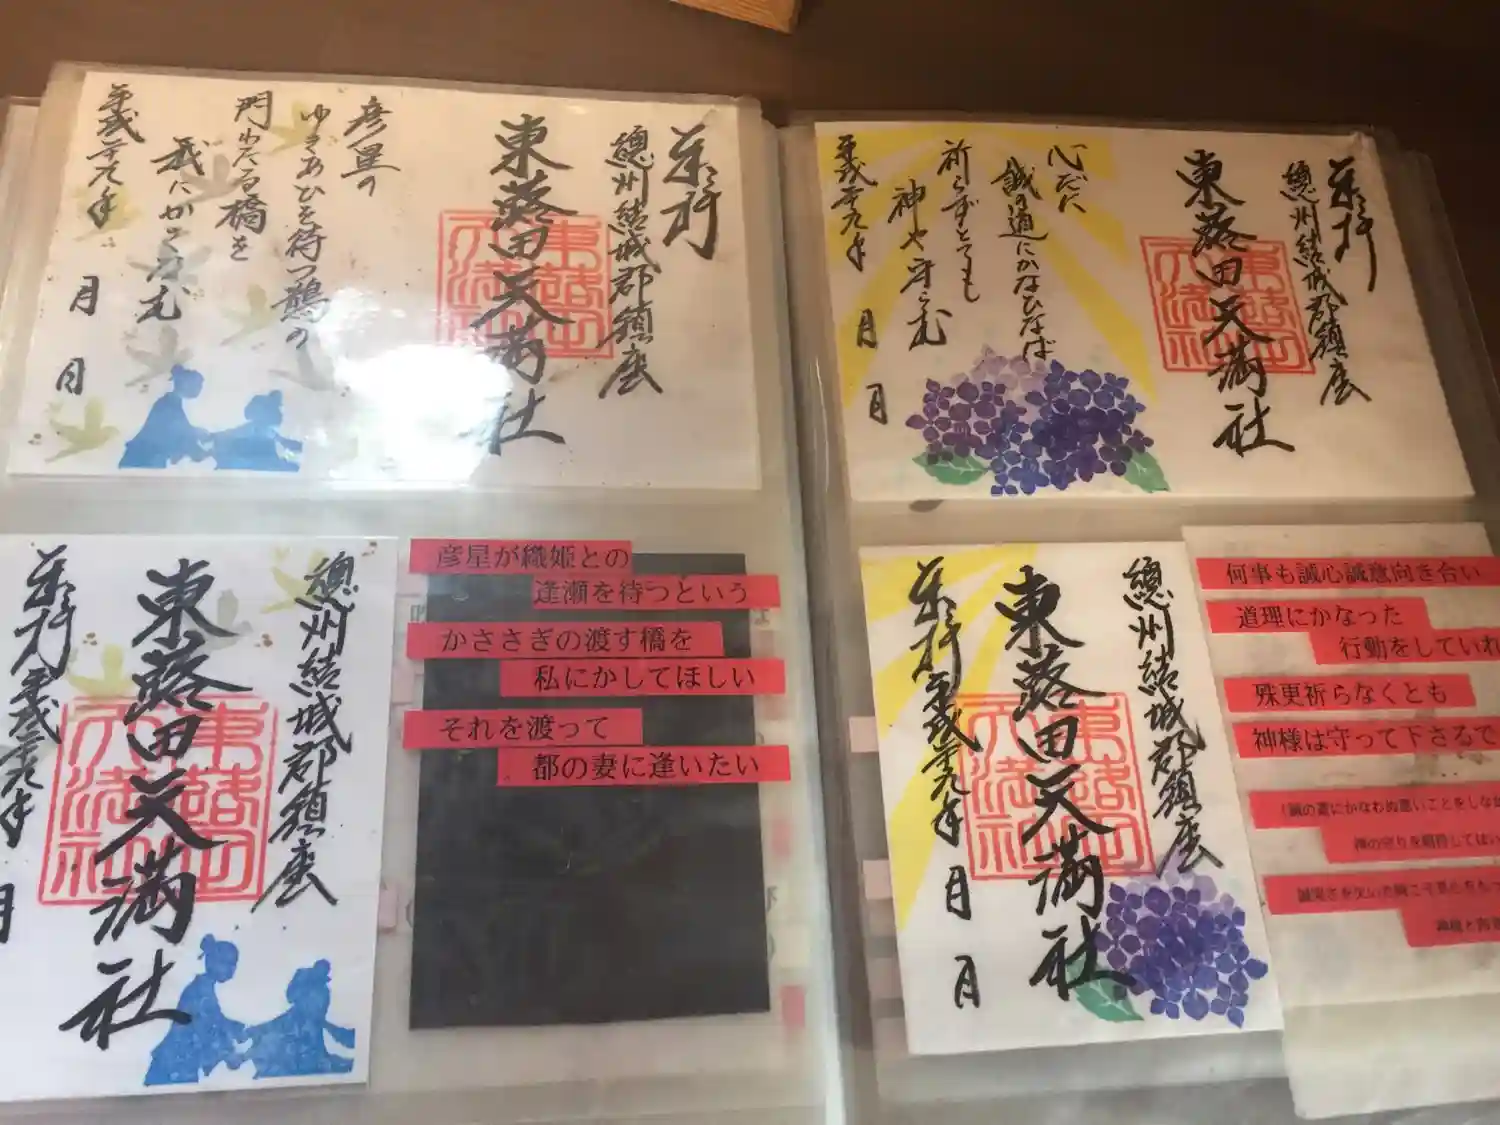 奉拝
總州結城郡鎮座
東蕗田天満社
彦星の
ゆきあひを待つ鵲の
門わたる橋を
我にかさなむ
平成二十九年
月
日
東蕗田天満社
總州結城郡鎮座
東蕗田天満社
奉拝
平成二十九年
月
東蕗田天満社
彦星が織姫との
逢瀬を待つという
かささぎの渡す橋を
私にかしてほしい
それを渡って
都の妻に逢いたい
奉拝
總州結城郡鎮座
東蕗田天満社
心だに
誠の道にかなひなば
祈らずとても
神や守らむ
平成二十九年
月
日
東蕗田天満社
總州結城郡鎮座
東蕗田天満社
奉拝
平成二十九年
月
日
東蕗田天満社
何事も誠心誠意向き合い
道理にかなった
行動をしていれ
殊更祈らなくとも
神様は守って下さるで